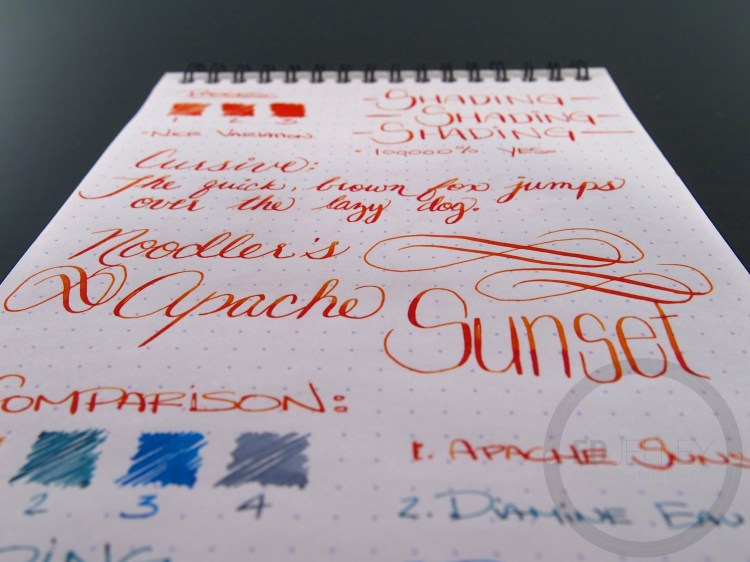 1 2 3
- Nice Variation
- Shading -
- Shading
- Shading -
• 100000% Yes
Cursive:
The quick, brown fox jumps
over the lazy dog.
Noodler's
Apache
Sunset
Comparison:
2 3 4
1. Apache Suns
2. Diamine Eau